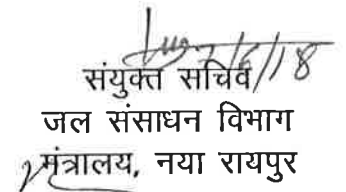 7/6/18
संयुक्त सचिव
जल संसाधन विभाग
मंत्रालय, नया रायपुर